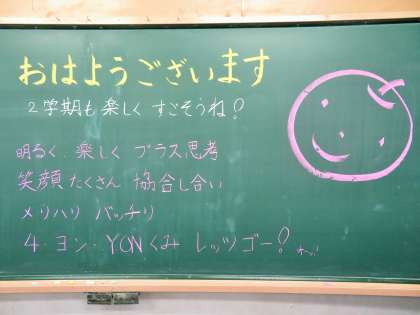 おはようございます
2学期も楽しくすごそうね?
明るく 楽しく プラス思考
笑顔たくさん 協合し合い
メリハリ バッチリ
4・ヨン・YONくみ レッツゴー!